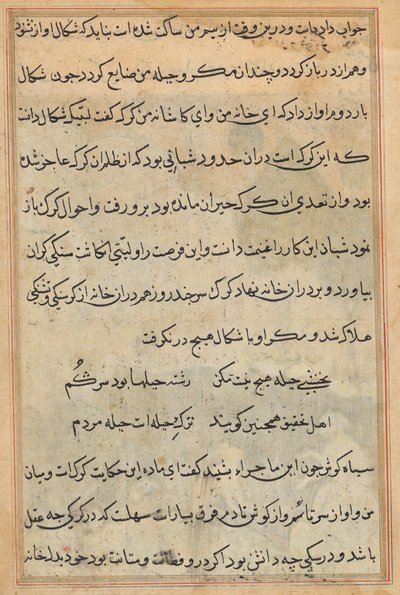 جواب داد دانست و درین وقت از سر من ساکت شده است بناید که شکال آواز شنود
و هم از در باز کردد و چندان مکر و حیله من ضایع کردد چون شکال
بار دوم آواز داد که ای خانه من وای کاشانه من کرک گفت لبیک شکال دانست
که این کرک است دران حدود شبانی بود که از ظلم آن کرک عاجز شده
بود و از تعدی آن کرک حیران مانده بود برو رفت و احوال کرک باز
نمود شبان این کار را غنیمت دانست و این فرصت را دولتی انکاشت سنکی کران
بیاورد و بر در آن خانه نهاد کرک سر چند روز هم دران خانه از کرسنکی و تشنکی
هلاک شد و مکر او با شکال هیچ در نکرفت
نخشبی حیله هیچ نیست مکن رشته حیلها بود سر کم
اهل تحقیق همچنین کویند ترک حیله است حیله مردم
سیاه کوش چون این ماجرا بشنید کفت ای ماده این حکایت کرکست و میان
من و او از سر تا سم و از کوش تا دم فرق بسیار است سهلست که در کرک چه عقل
باشد و در سکی چه دانش بود اکر درو و متانت بود خود بدر خانه